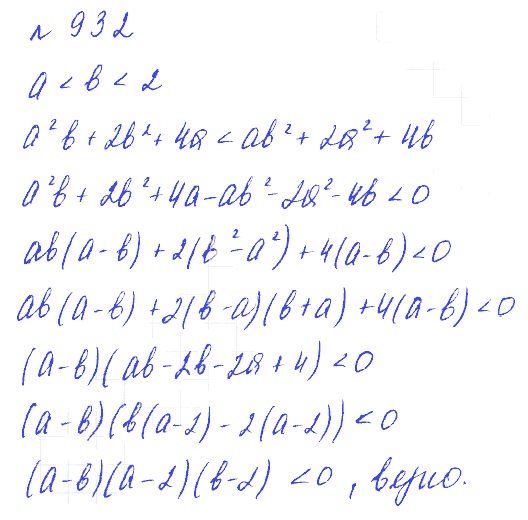 № 932
a < b < 2
a²b + 2b² + 4a < ab² + 2a² + 4b
a²b + 2b² + 4a - ab² - 2a² - 4b < 0
ab(a-b) + 2(b²-a²) + 4(a-b) < 0
ab(a-b) + 2(b-a)(b+a) + 4(a-b) < 0
(a-b)(ab-2b-2a+4) < 0
(a-b)(b(a-2)-2(a-2)) < 0
(a-b)(a-2)(b-2) < 0, верно.